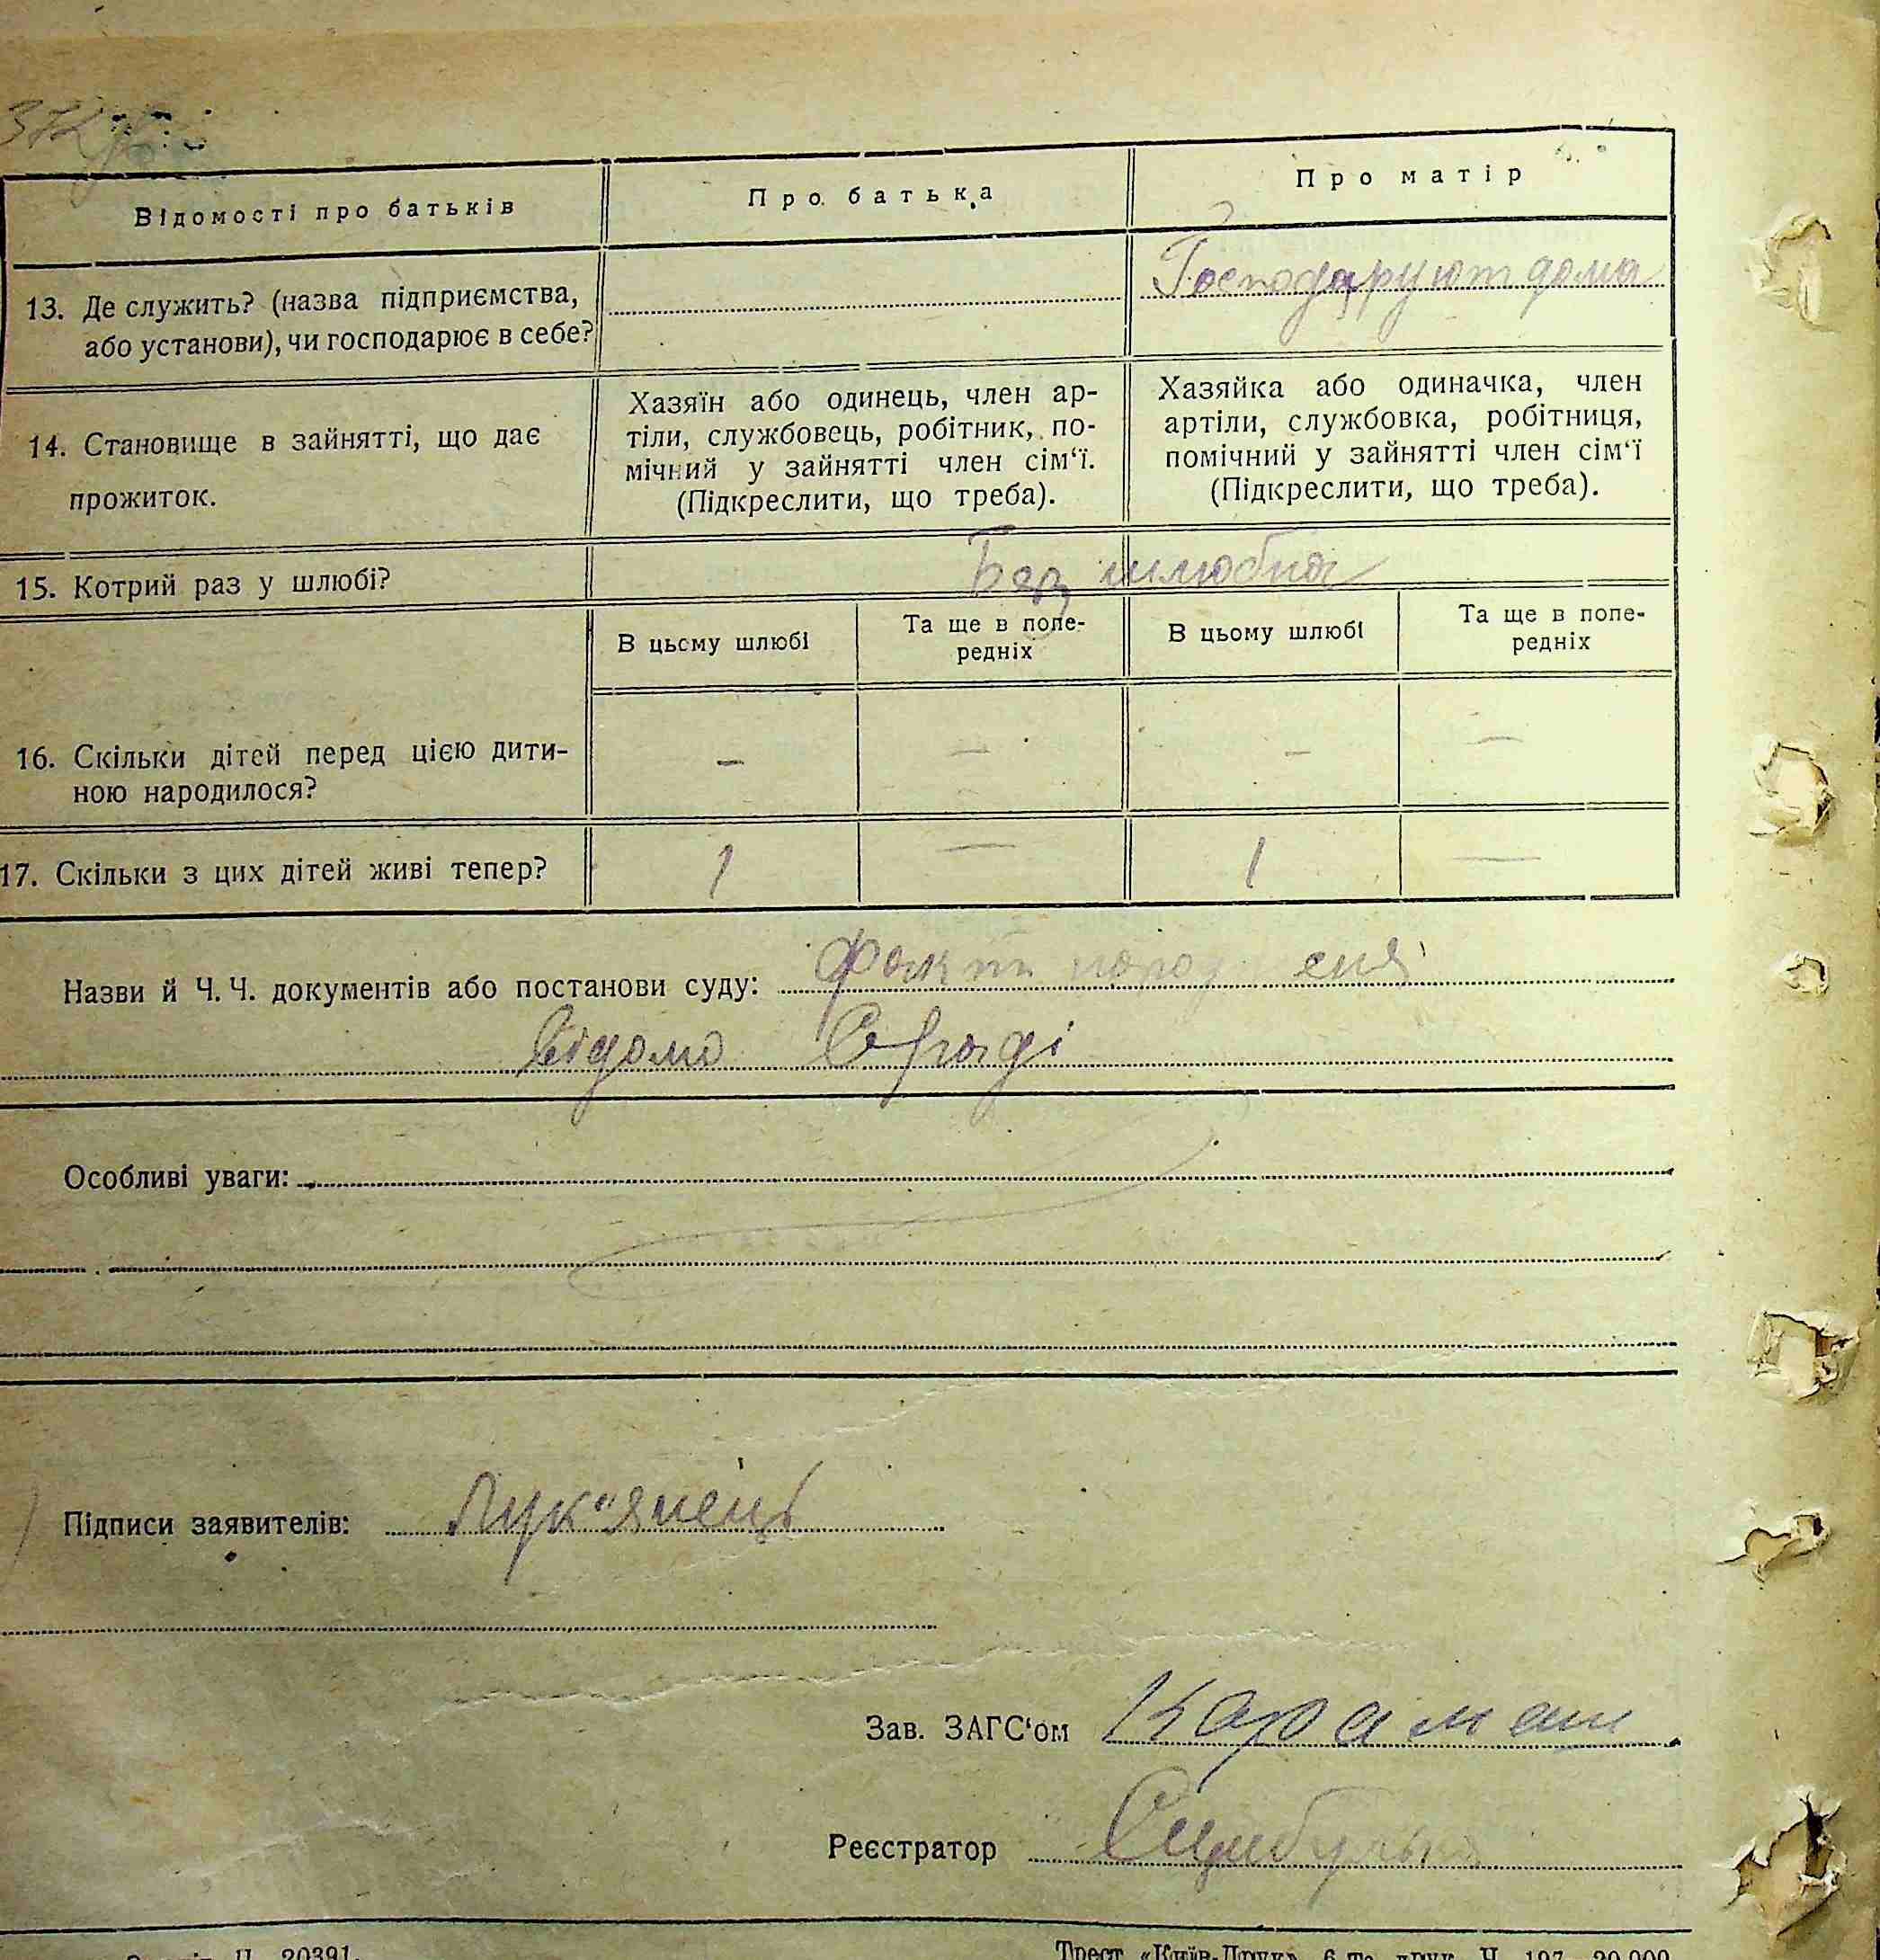 Відомості про батьків
Про батька
Про матір
13. Де служить? (назва підприємства,
або установи), чи господарює в себе?
Господарюют дома
14. Становище в зайнятті, що дає
прожиток.
Хазяїн або одинець, член ар-
тіли, службовець, робітник, по-
мічний у зайнятті член сім‘ї.
(Підкреслити, що треба).
Хазяйка або одиначка, член
артіли, службовка, робітниця,
помічний у зайнятті член сім‘ї
(Підкреслити, що треба).
15. Котрий раз у шлюбі?
Без шлюбна
В цьому шлюбі
Та ще в попе-
редніх
В цьому шлюбі
Та ще в попе-
редніх
16. Скільки дітей перед цією дити-
ною народилося?
— — — —
17. Скільки з цих дітей живі тепер?
1 — 1 —
Назви й Ч. Ч. документів або постанови суду: Факт
відомо
Особливі уваги:
Підписи заявителів: Лук"янець
Зав. ЗАГС‘ом Караман
Реєстратор
20391.
Трест «Київ-Друк»